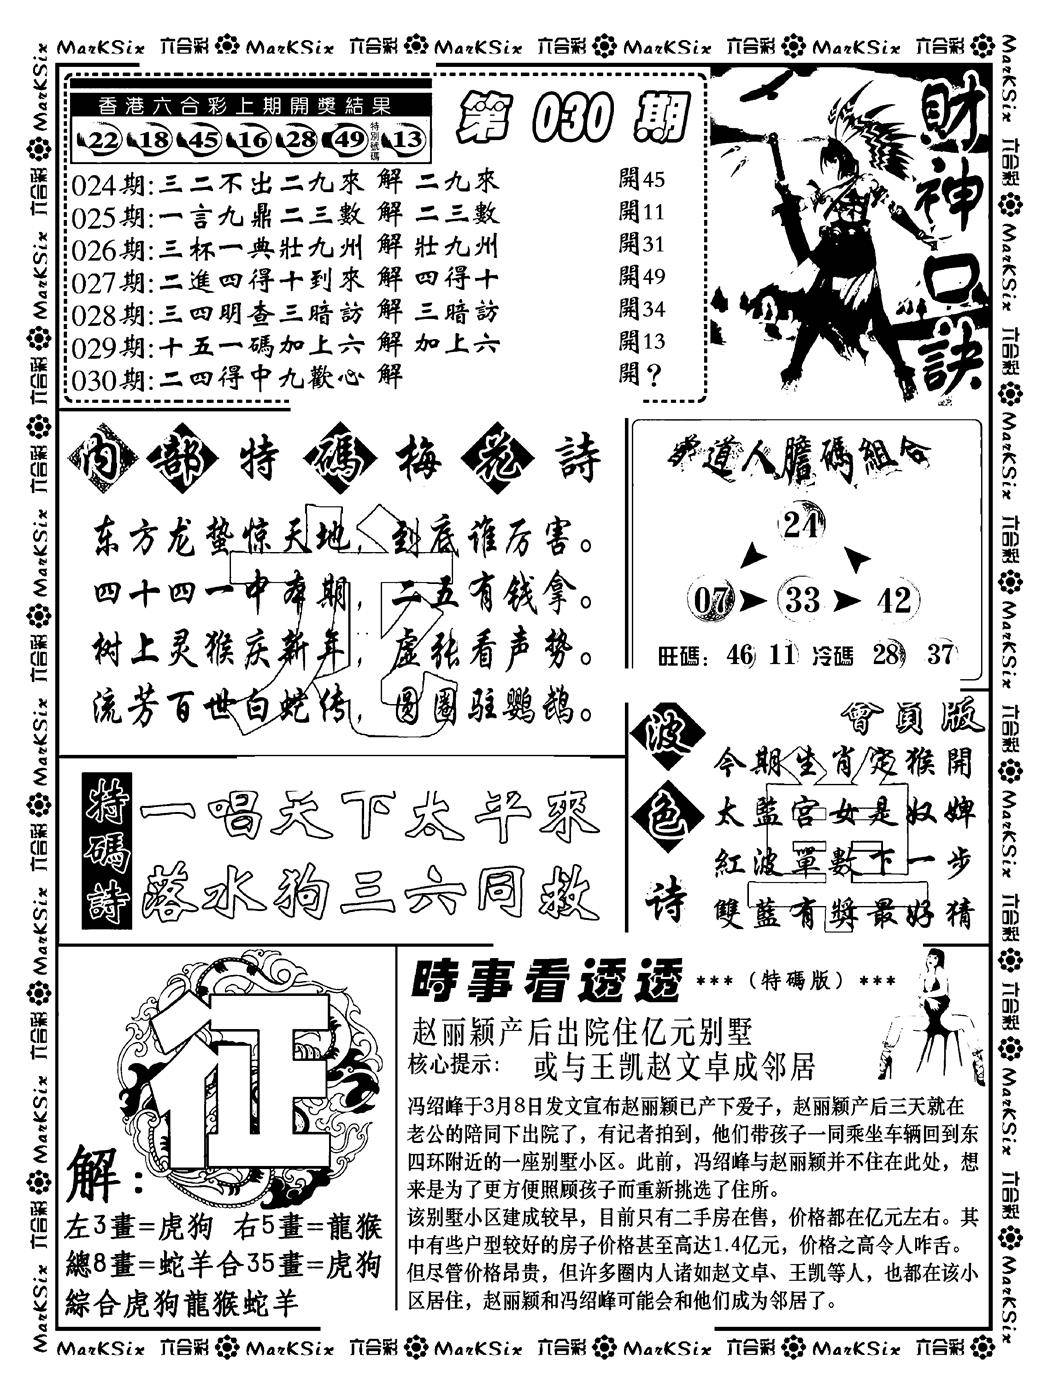 MarKSix 六合彩 MarKSix 六合彩 MarKSix 六合彩 MarKSix 六合彩 MarKSix 六合彩
香港六合彩上期開獎結果
22 18 45 16 28 49 特別號碼 13
第 030 期
024期:三二不出二九來 解 二九來 開45
025期:一言九鼎二三數 解 二三數 開11
026期:三杯一典壯九州 解 壯九州 開31
027期:二進四得十到來 解 四得十 開49
028期:三四明查三暗訪 解 三暗訪 開34
029期:十五一碼加上六 解 加上六 開13
030期:二四得中九歡心 解 開?
財神口訣
內部特碼梅花詩
东方龙蛰惊天地，到底谁厉害。
四十四一中本期，二五有钱拿。
树上灵猴庆新年，虚张看声势。
流芳百世白蛇传，圆圈驻鹦鹉。
道人膽碼組合
24
07 33 42
旺碼: 46 11 冷碼 28 37
特碼詩
一唱天下太平來
落水狗三六同救
波色诗
會員版
今期生肖定猴開
太監宫女是奴婢
紅波單數下一步
雙藍有獎最好猜
征
解:
左3畫=虎狗 右5畫=龍猴
總8畫=蛇羊合35畫=虎狗
綜合虎狗龍猴蛇羊
時事看透透 ***(特碼版)***
赵丽颖产后出院住亿元别墅
核心提示: 或与王凯赵文卓成邻居
冯绍峰于3月8日发文宣布赵丽颖已产下爱子，赵丽颖产后三天就在
老公的陪同下出院了，有记者拍到，他们带孩子一同乘坐车辆回到东
四环附近的一座别墅小区。此前，冯绍峰与赵丽颖并不住在此处，想
来是为了更方便照顾孩子而重新挑选了住所。
该别墅小区建成较早，目前只有二手房在售，价格都在亿元左右。其
中有些户型较好的房子价格甚至高达1.4亿元，价格之高令人咋舌。
但尽管价格昂贵，但许多圈内人诸如赵文卓、王凯等人，也都在该小
区居住，赵丽颖和冯绍峰可能会和他们成为邻居了。
MarKSix 六合彩 MarKSix 六合彩 MarKSix 六合彩 MarKSix 六合彩 MarKSix 六合彩